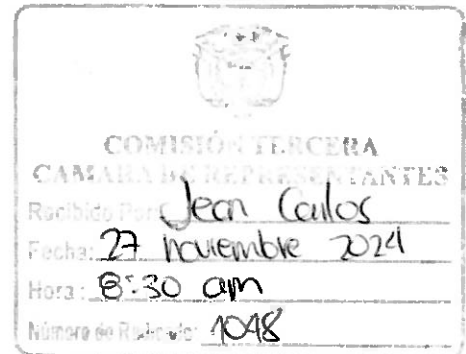 COMISIÓN TERCERA
CAMARA DE REPRESENTANTES
Recibido Por: Jean Carlos
Fecha: 27 noviembre 2024
Hora: 8:30 am
Número de Radicado: 1048